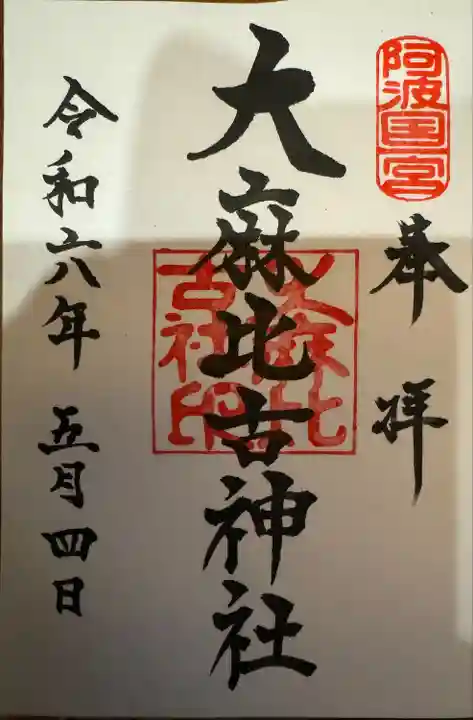 阿波国一宮
奉拝
大麻比古神社
大麻比古社印
令和六年五月四日